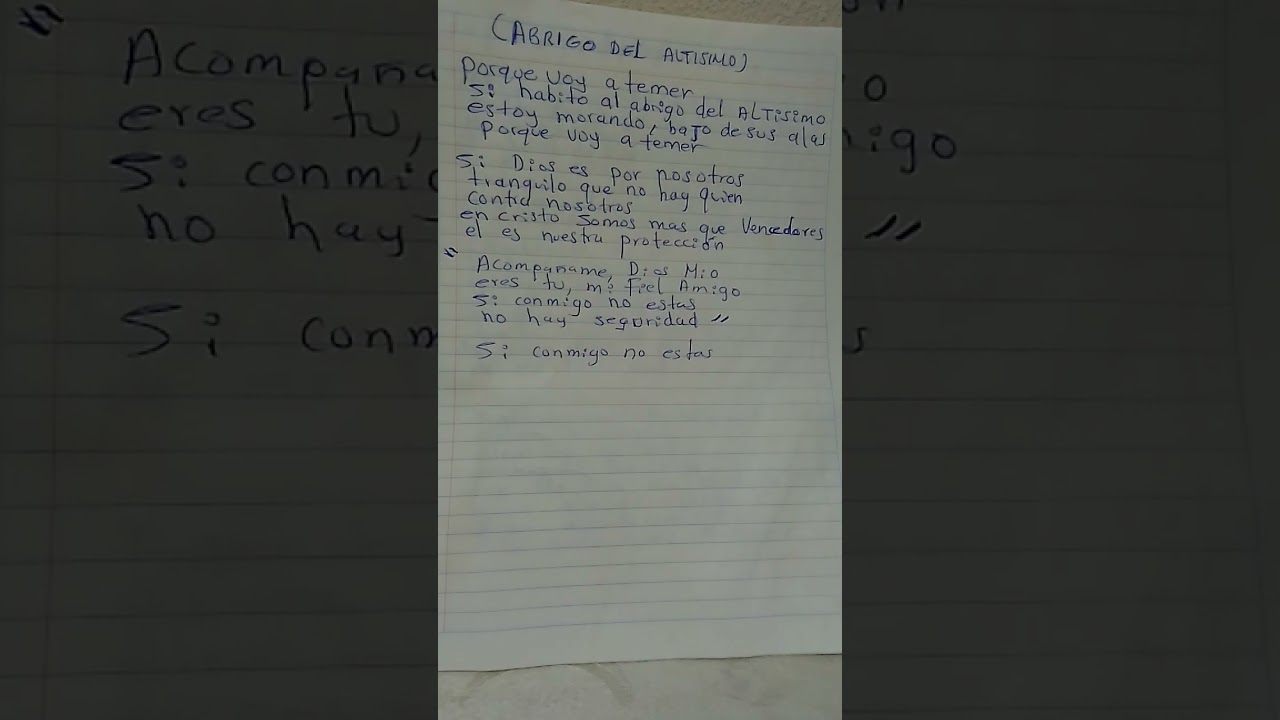 (ABRIGO DEL ALTISIMO)
Porque voy a temer
Si habito al abrigo del ALTisimo
estoy morando, bajo de sus alas
Porque voy a temer
Si Dios es por nosotros
tranquilo que no hay quien
contra nosotros
en cristo somos mas que Vencedores
el es nuestra protección
" Acompañame, Dios Mio
eres tu, mi Fiel Amigo
Si conmigo no estas
no hay seguridad "
Si conmigo no estas